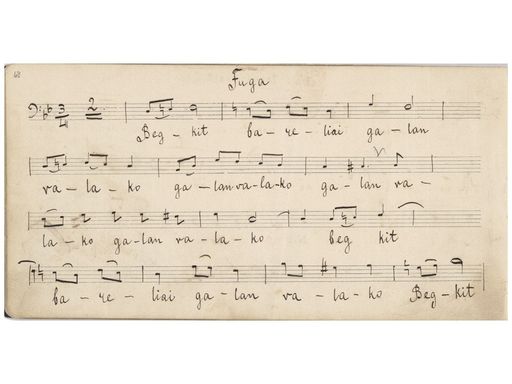 Fuga
Beg - kit ba - re - liai ga - lan
va - la - ko ga - lan va - la - ko ga lan va -
la - ko ga - lan va - la - ko beg kit
ba - re - liai ga - lan va - la - ko Beg - kit